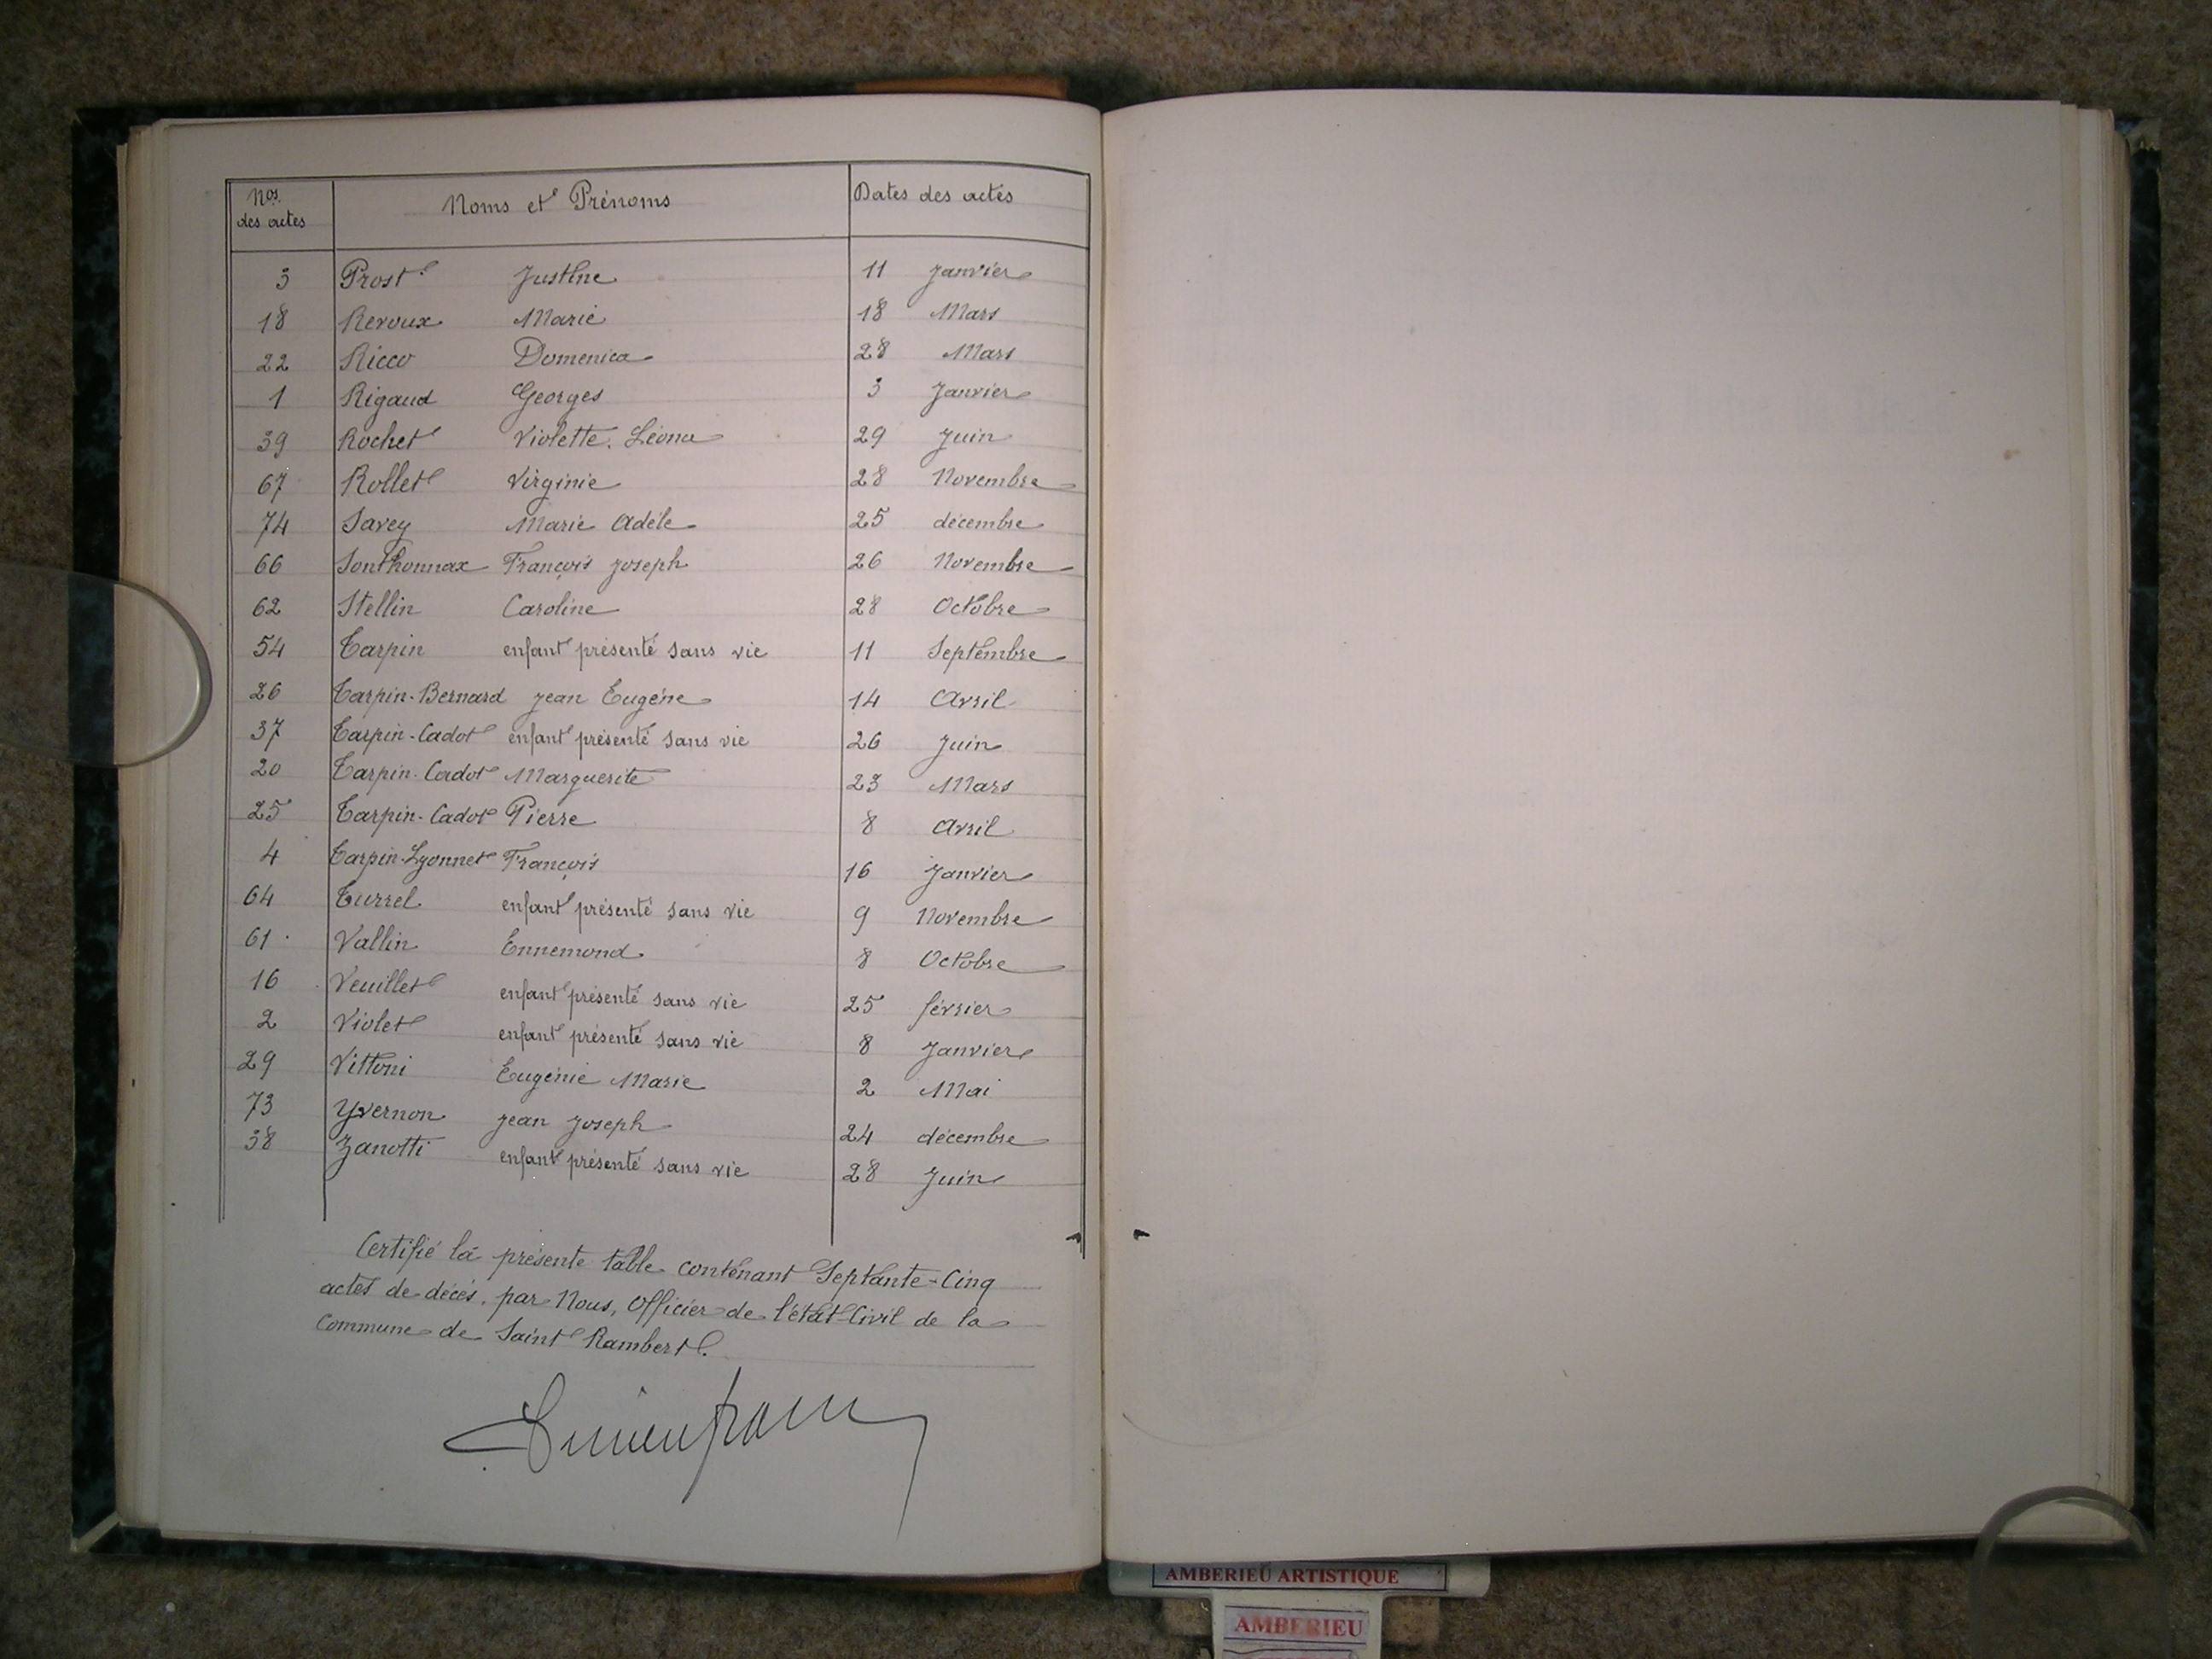 Nos. des actes Noms et Prénoms Dates des actes
3 Prost Justine 11 Janvier
18 Reroux Marie 18 Mars
22 Ricco Domenica 28 Mars
1 Rigaud Georges 3 Janvier
39 Rochet Violette. Léona 29 Juin
67 Rollet Virginie 28 Novembre
74 Savey Marie Adèle 25 décembre
66 Sonthonnax François Joseph 26 Novembre
62 Stellin Caroline 28 Octobre
54 Tarpin enfant présenté sans vie 11 Septembre
26 Tarpin-Bernard Jean Eugène 14 Avril
37 Tarpin-Cadot enfant présenté sans vie 26 Juin
20 Tarpin-Cadot Marguerite 23 Mars
25 Tarpin-Cadot Pierre 8 Avril
4 Tarpin-Lyonnet François 16 Janvier
64 Turrel enfant présenté sans vie 9 Novembre
61 Vallin Ennemond 8 Octobre
16 Veuillet enfant présenté sans vie 25 février
2 Violet enfant présenté sans vie 8 Janvier
29 Vittoni Eugénie Marie 2 Mai
73 Yvernon Jean Joseph 24 décembre
38 Zanotti enfant présenté sans vie 28 Juin
Certifié la présente table contenant Septante-Cinq
actes de décès, par Nous, Officier de l'état-Civil de la
Commune de Saint Rambert.
AMBERIEU ARTISTIQUE
AMBERIEU